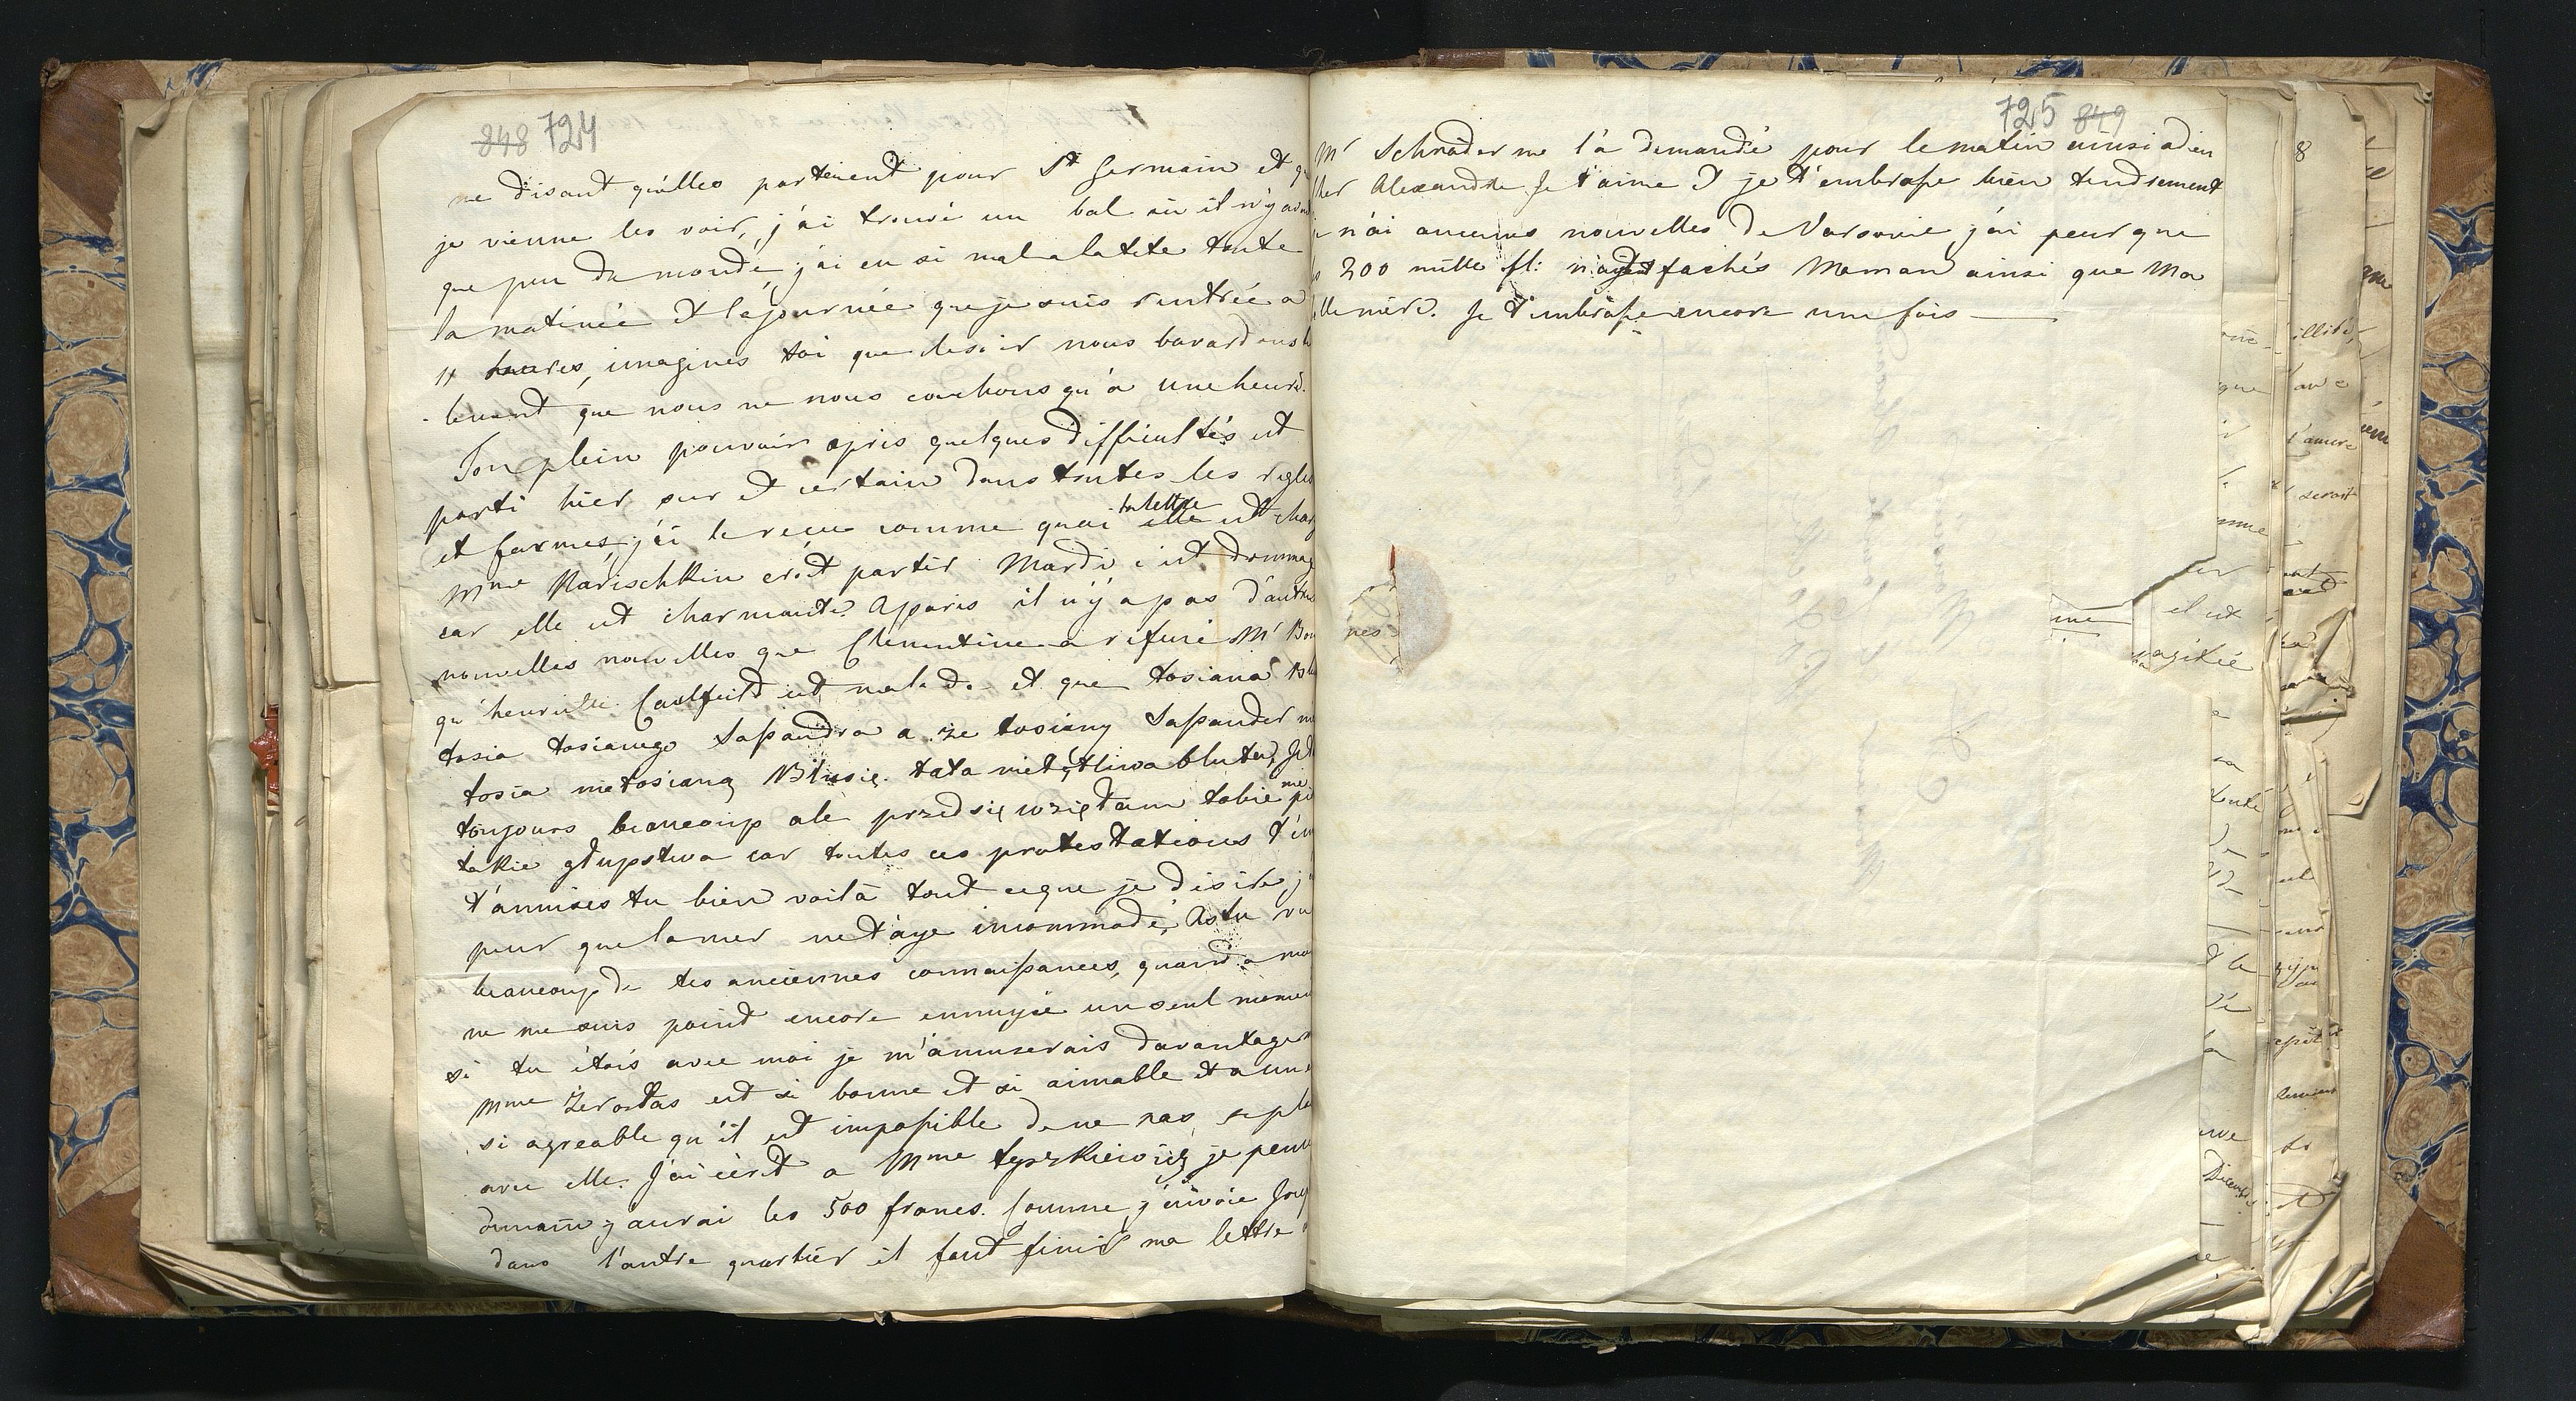 848 724
me disant qu'elles partaient pour St Germain et
je vienne les voir, j'ai trouvé un bal où il n'y avait
que peu de monde, j'ai eu si mal a la tete toute
la matinée et la journée que je suis rentrée a
11 heures, imagines toi que le soir nous bavardons
tenant que nous ne nous couchons qu'à une heure.
Ton plein pouvoir apris quelques difficultés est
parti hier sur et certain dans toutes les regles
et formes, j'ai le reçu comme quoi ta lettre est
Mme Narischkin croit partir Mardi c'est
car elle est charmante. A paris il n'y a pas d'autres
nouvelles nouvelles que Clementine a refusé Mr
qu'henriette Caulfeild est malade et que tosiana
tosia tosianego Sapandra a ze tosiany Sapander
tosia metosianą Blusię. tata
toujours beaucoup ale przedsięwzięłam tobie nie
takie głupstwa car toutes ces protestations
t'amuses tu bien voilà tout ce que je désire,
peur que la mer ne t'aye incommodé, As tu vu
beaucoup de tes anciennes connaissances, quand a moi
ne me suis point encore ennuyée un seul moment
si tu étais avec moi je m'amuserais davantage
Mme est si bonne et si aimable et a un
si agreable qu'il est impossible de ne pas se
avec elle. J'ai écrit a Mme tyszkiewicz je
demain j'aurai les 500 francs. Comme j'envoie
dans l'autre quartier il faut finir ma lettre
725 849
Mr Schrader me l'à demandé pour le matin ainsi adieu
cher Alexandre Je t'aime et je t'embrasse bien tendrement
n'ai aucunes nouvelles de Varsovie j'ai peur que
200 mille fl: n'ayent fachés Maman ainsi que Ma
belle mère. Je t'embrasse encore une fois